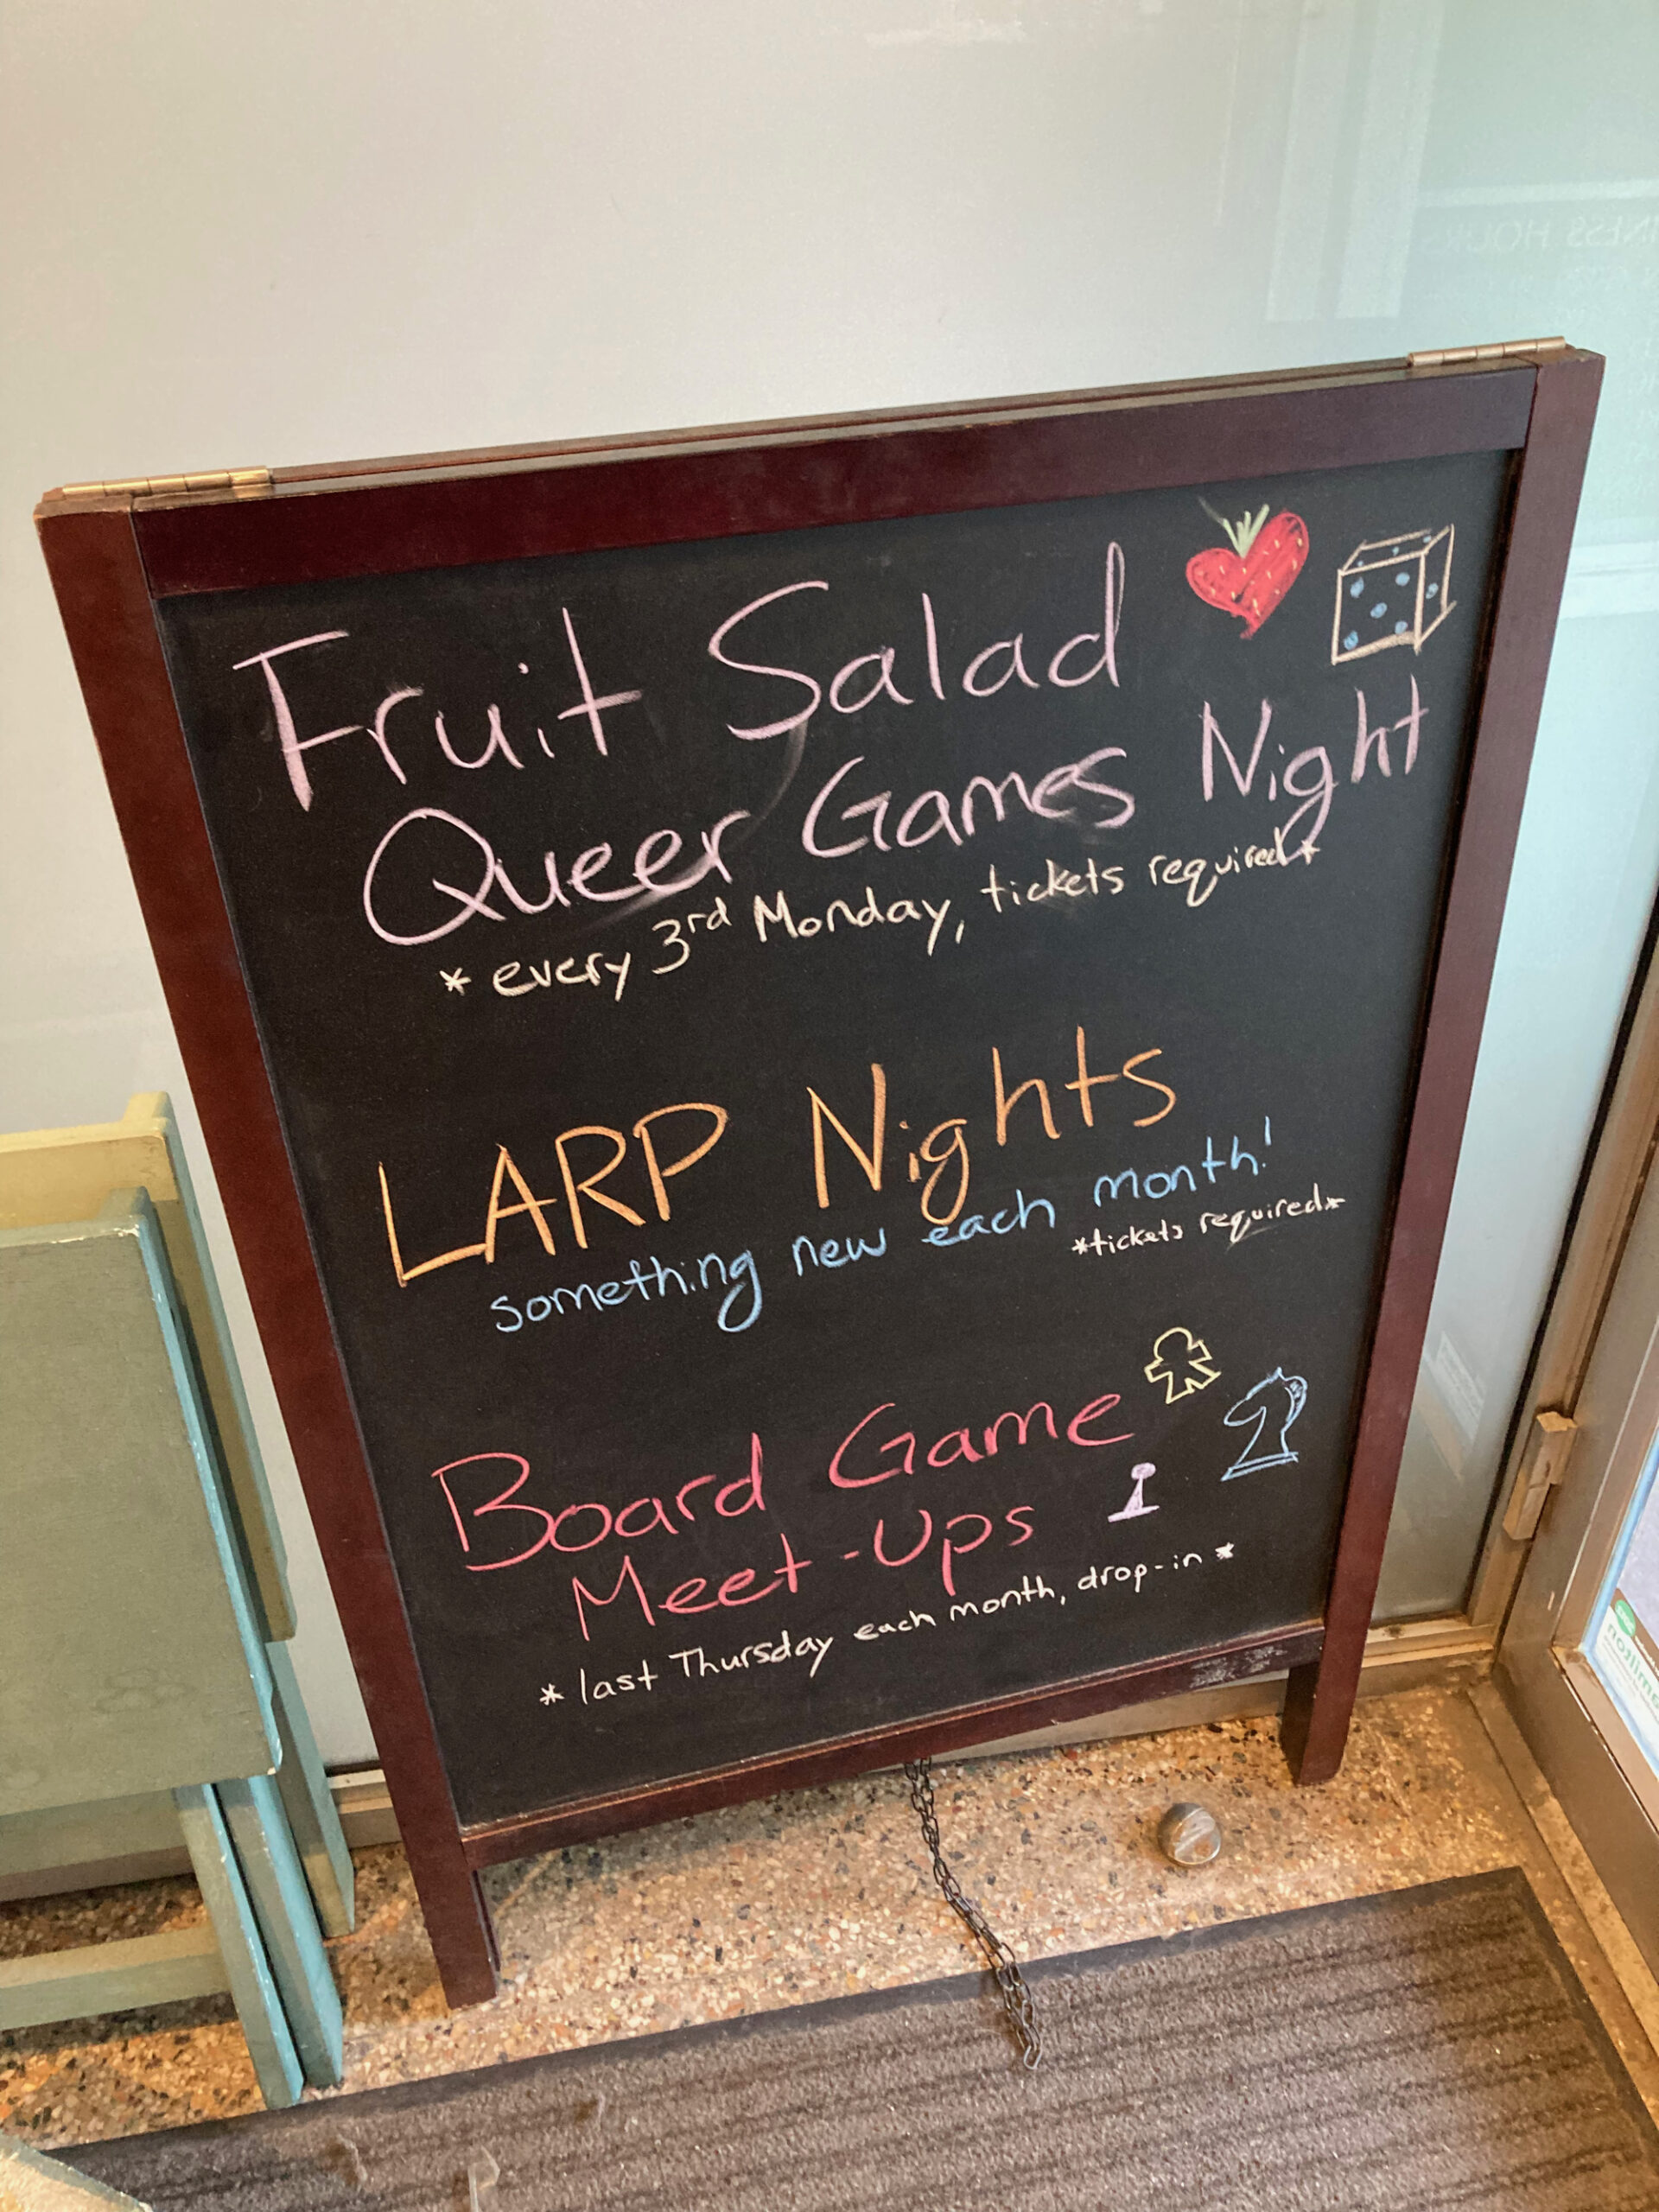 Fruit Salad
Queer Games Night
* every 3rd Monday, tickets required *
LARP Nights
something new each month!
*tickets required*
Board Game
Meet-Ups
* last Thursday each month, drop-in *